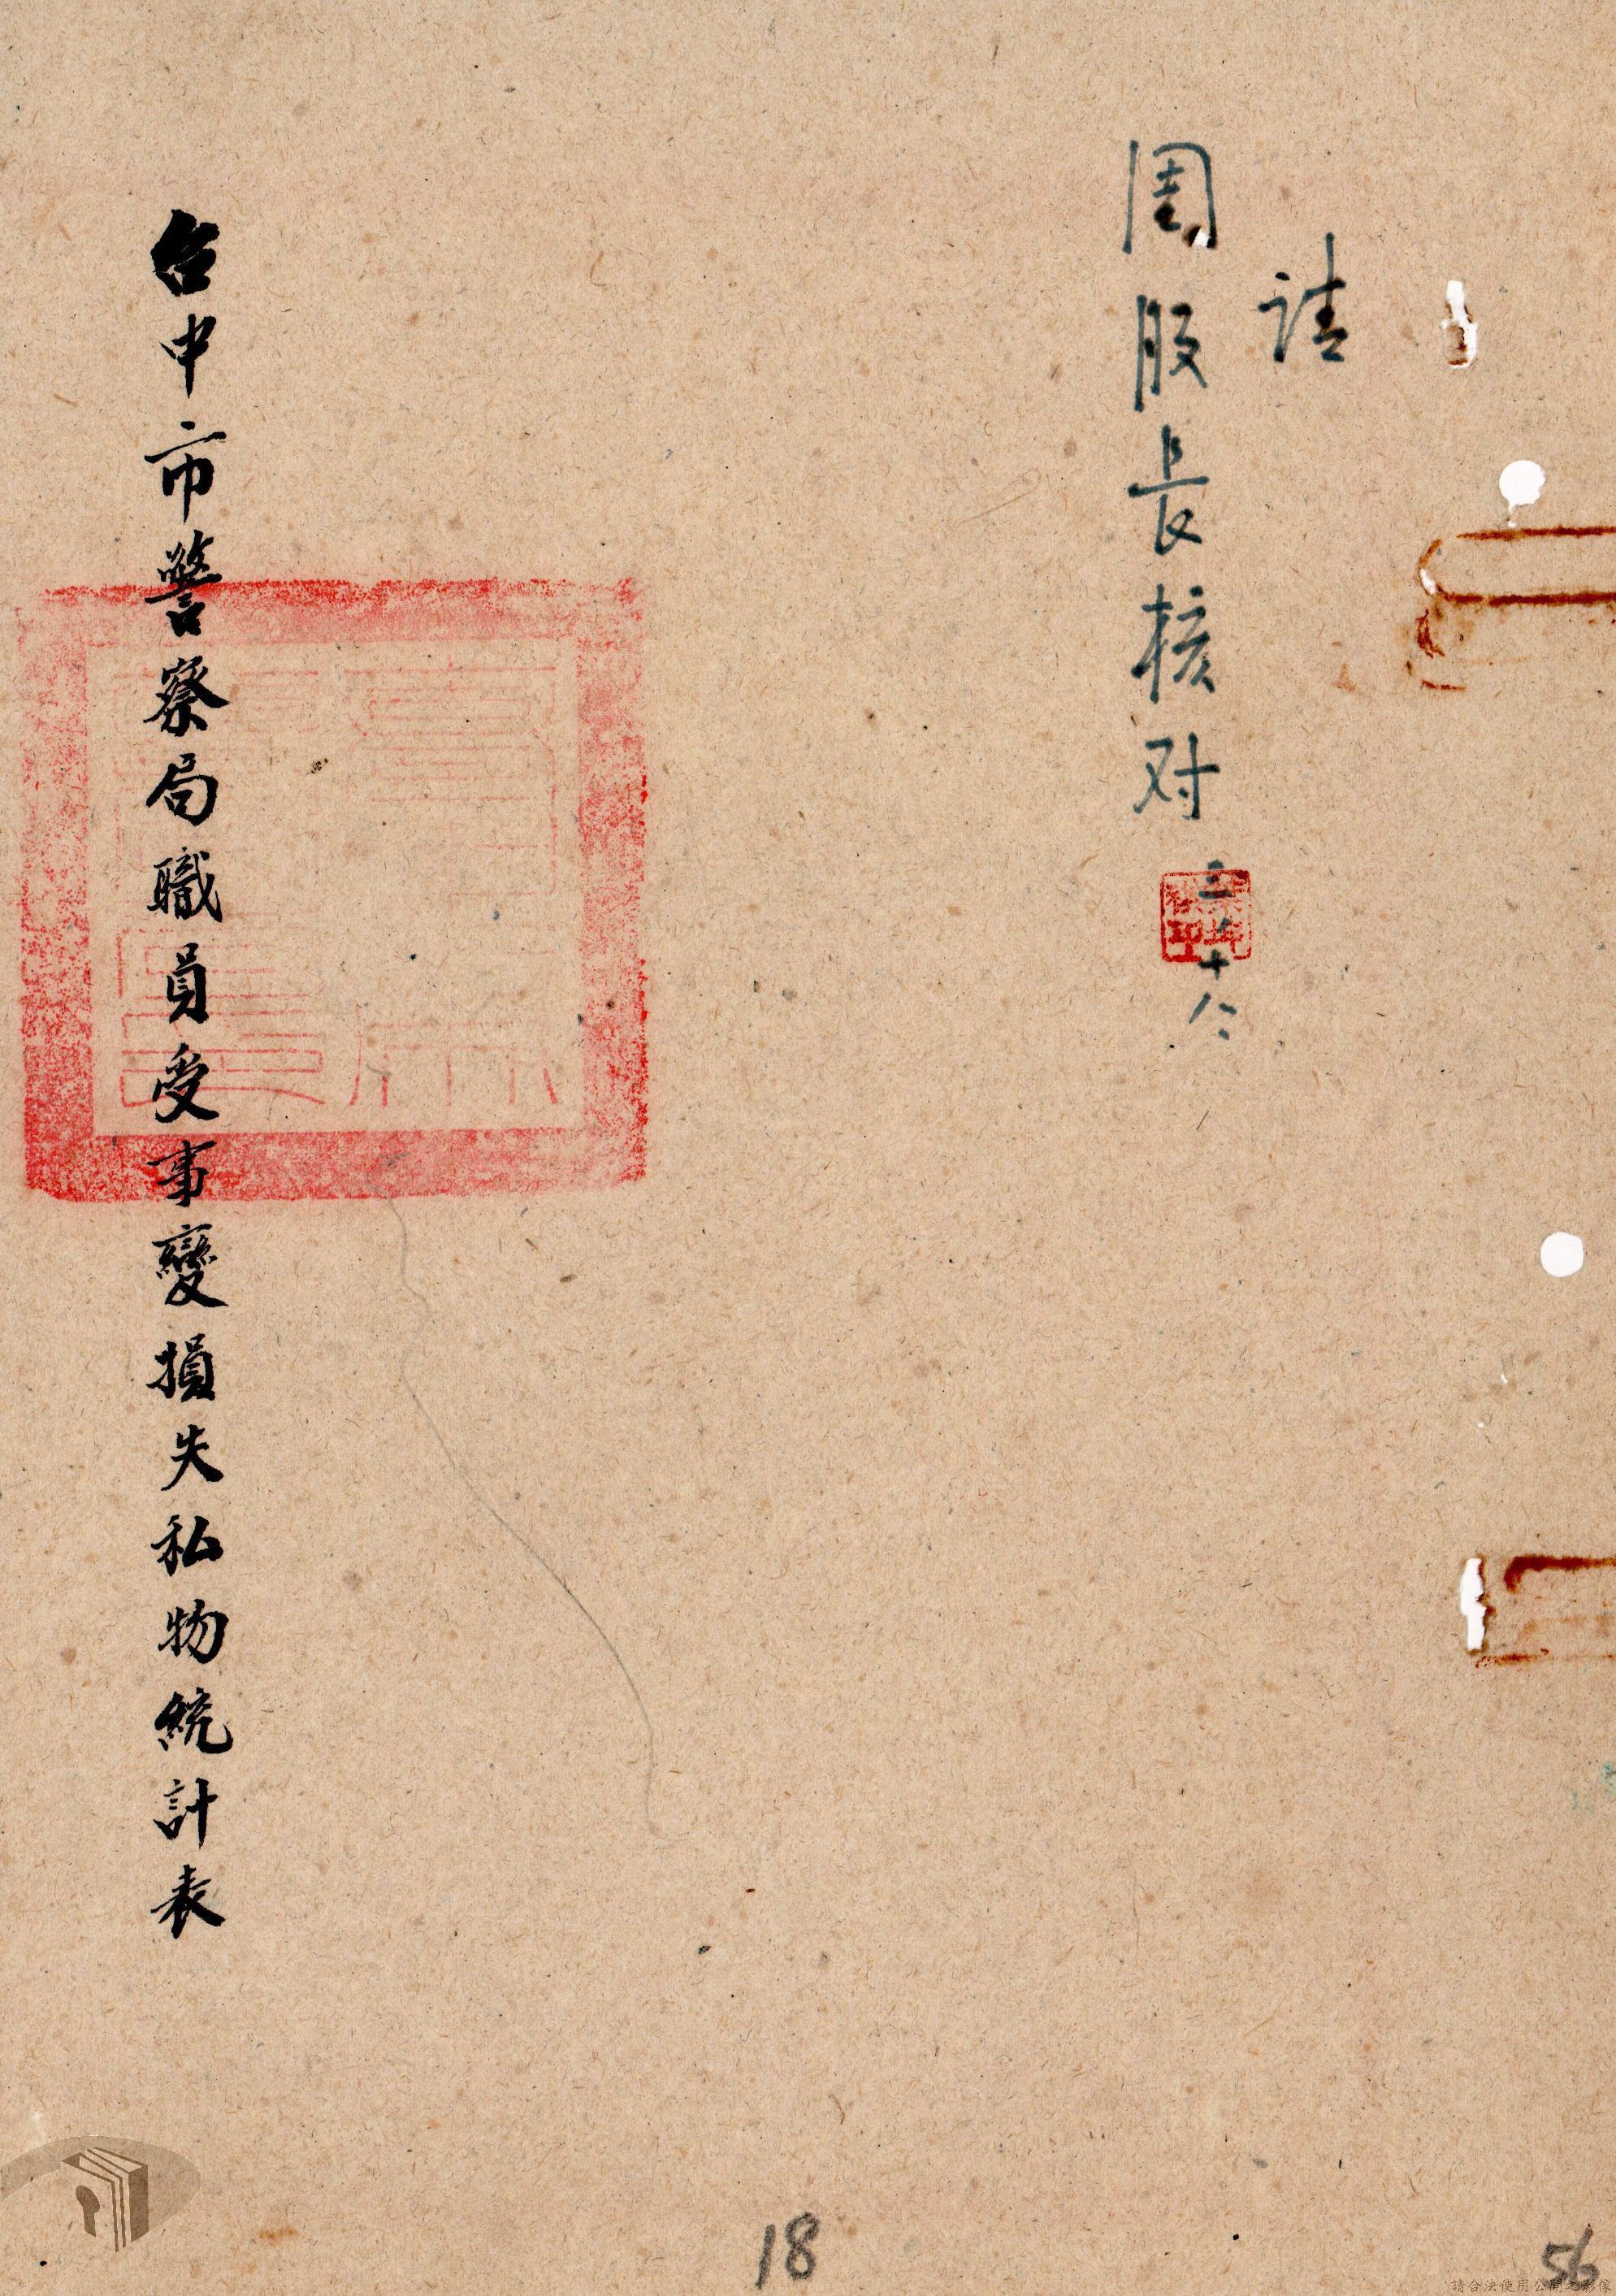 请
周股長核对
台中市警察局職員受事變損失私物統計表
18
56
請合法使用公開之影像